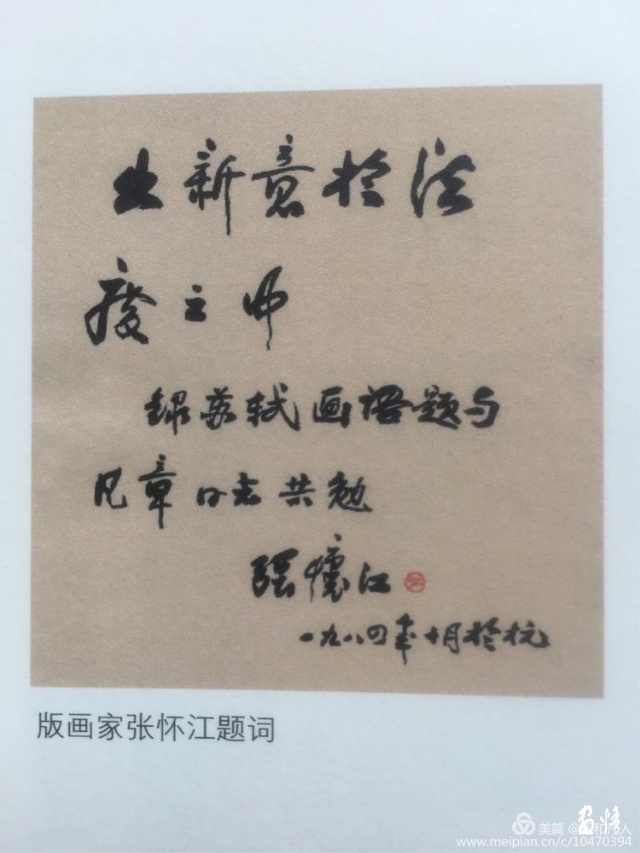 出新意於法
度之中
録苏轼画语题与
凡章同志共勉
張懷江
一九八四年十月於杭
版画家张怀江题词
美篇 @和凡人
www.meipian.cn/c/10470394